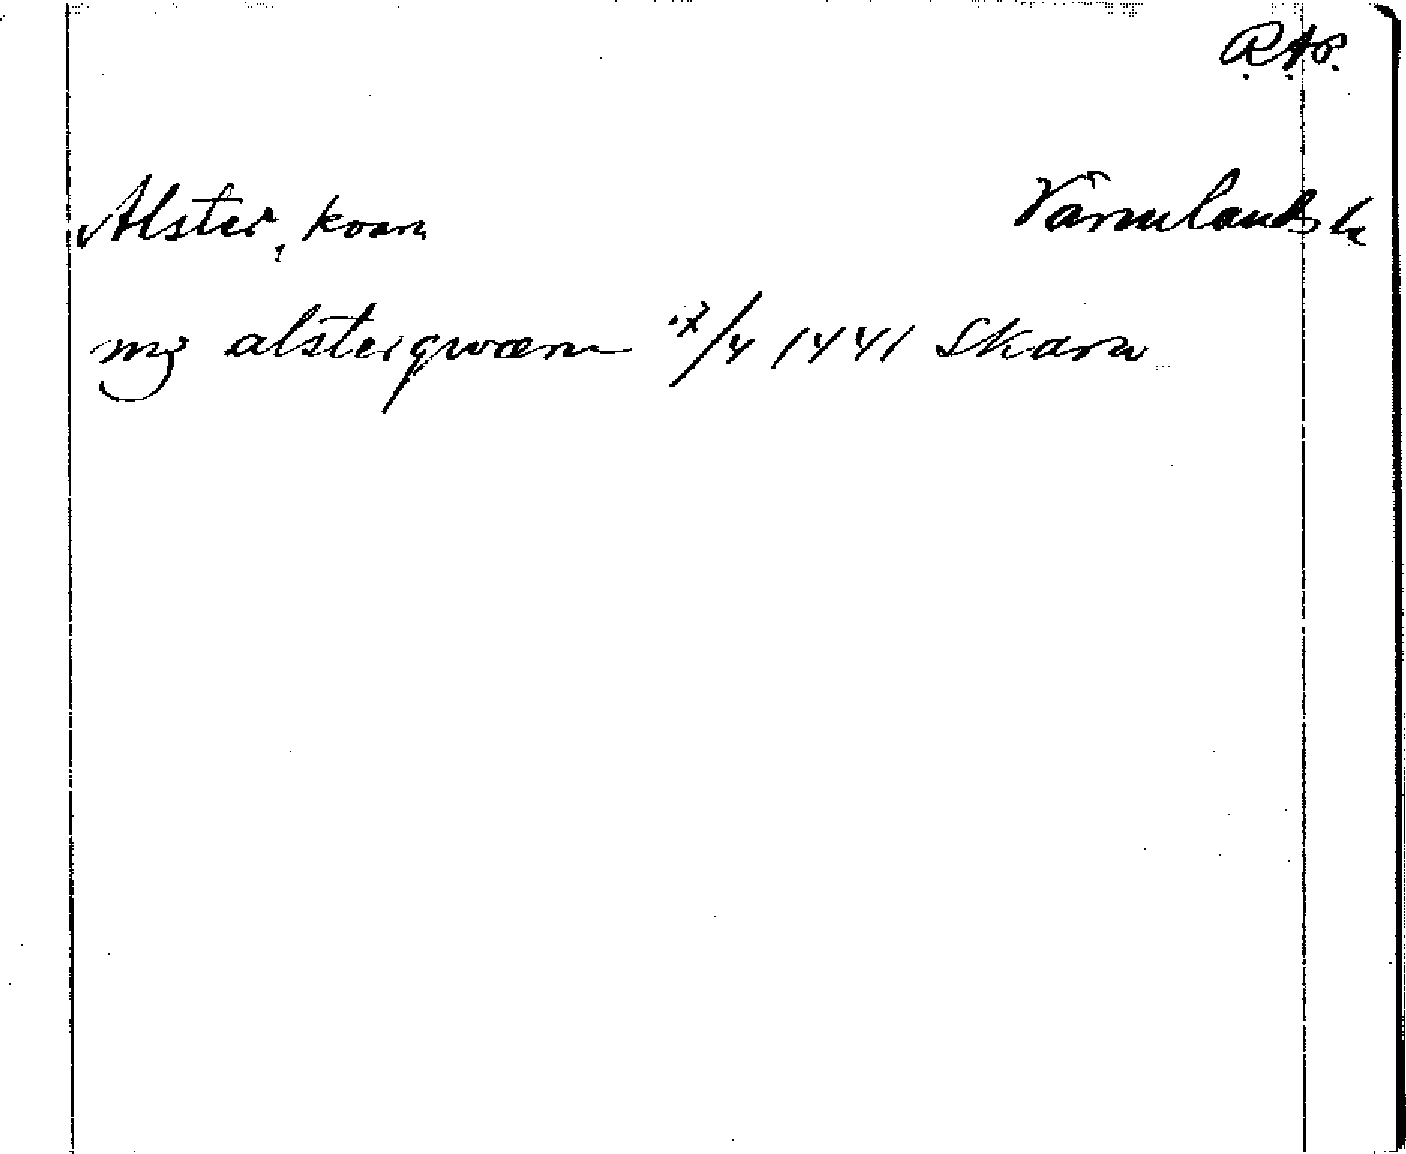 R.A.P.
Alster, kvarn Värmlands l.
mz alsterqwærn /4 1441 Skara